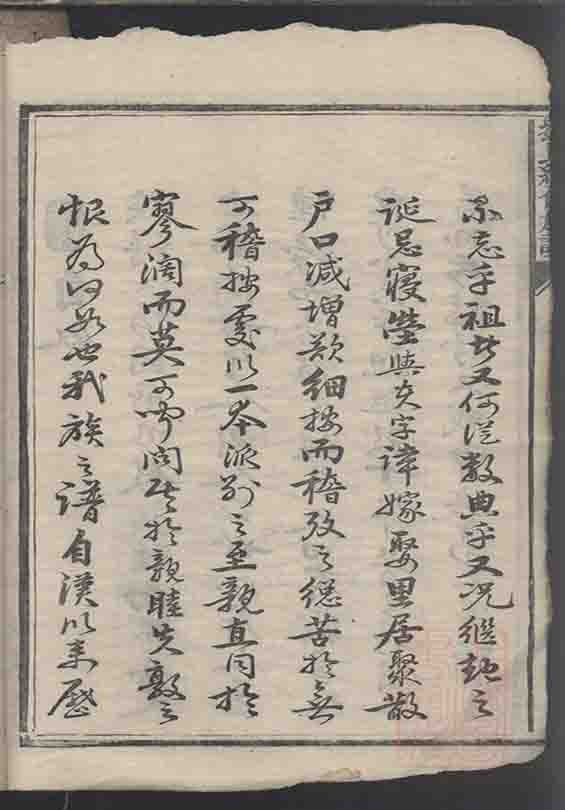 忘乎祖者又何從数典乎又况繼起之
誕忌寝瑩與夫字諱嫁娶里居聚散
戶口減增欲細按而稽攷之總苦於無
可稽按處以一本派别之至親直同於
寥濶而莫可聞問失於親睦失敦之
恨為何如也我族之譜自漢以来歷